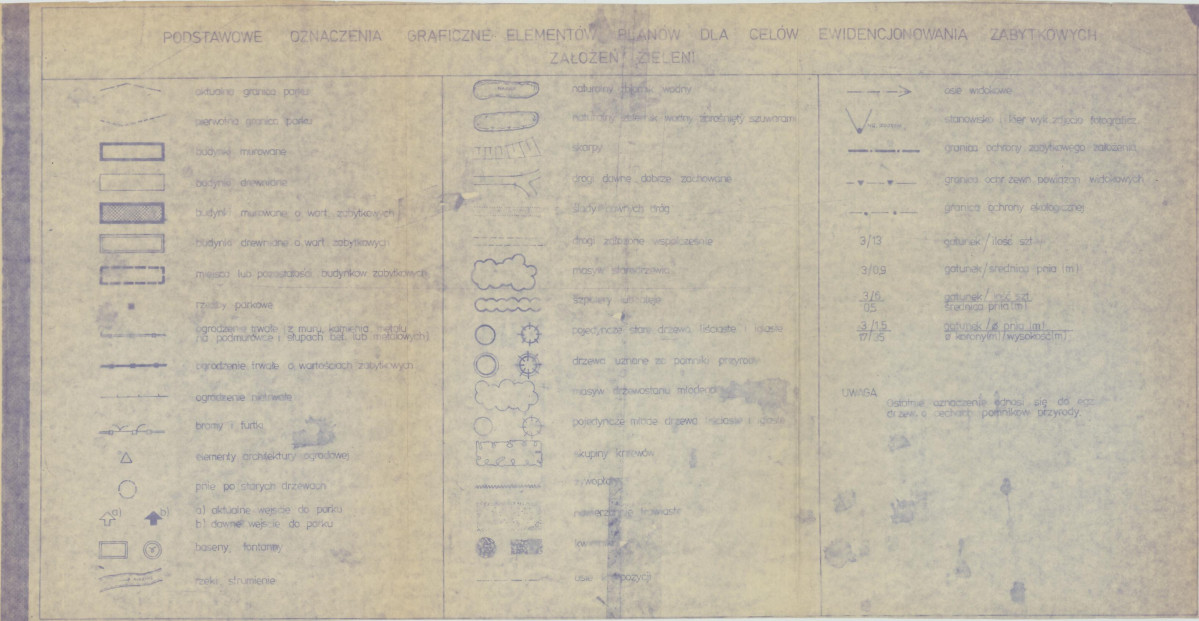 PODSTAWOWE OZNACZENIA GRAFICZNE ELEMENTÓW PLANÓW DLA CELÓW EWIDENCJONOWANIA ZABYTKOWYCH
ZAŁOŻEŃ ZIELENI
aktualna granica parku
pierwotna granica parku
budynki murowane
budynki drewniane
budynki murowane o wart. zabytkowych
budynki drewniane o wart. zabytkowych
miejsca lub pozostałości budynków zabytkowych
rzeźby parkowe
ogrodzenie trwałe z muru, kamienia, metalu
(na podmurówce i słupach bet. lub metalowych)
ogrodzenie trwałe o wartościach zabytkowych
ogrodzenie nietrwałe
bramy i furtki
elementy architektury ogrodowej
pnie po starych drzewach
a) b)
a) aktualne wejście do parku
b) dawne wejście do parku
baseny, fontanny
rzeki, strumienie
naturalny zbiornik wodny
naturalny zbiornik wodny zarośnięty szuwarami
skarpy
drogi dawne dobrze zachowane
ślady dawnych dróg
drogi założone współcześnie
masyw starodrzewia
szpalery
pojedyncze stare drzewa liściaste i iglaste
drzewa uznane za pomniki przyrody
masyw drzewostanu młodego
pojedyncze młode drzewa liściaste i iglaste
skupiny krzewów
żywopłoty
osie kompozycji
osie widokowe
stanowisko i kier. wyk. zdjęcia fotografic.
granica ochrony zabytkowego założenia
granica ochr. zewn. powiązań widokowych
granica ochrony ekologicznej
3/13 gatunek/ilość szt.
3/0,9 gatunek/średnica pnia (m)
3/6 gatunek/ilość szt.
0,5 średnica pnia (m)
3/1,5 gatunek/ø pnia (m)
17/25 ø korony(m)/wysokość(m)
UWAGA
Ostatnie oznaczenie odnosi się do
drzew o cechach pomników przyrody.